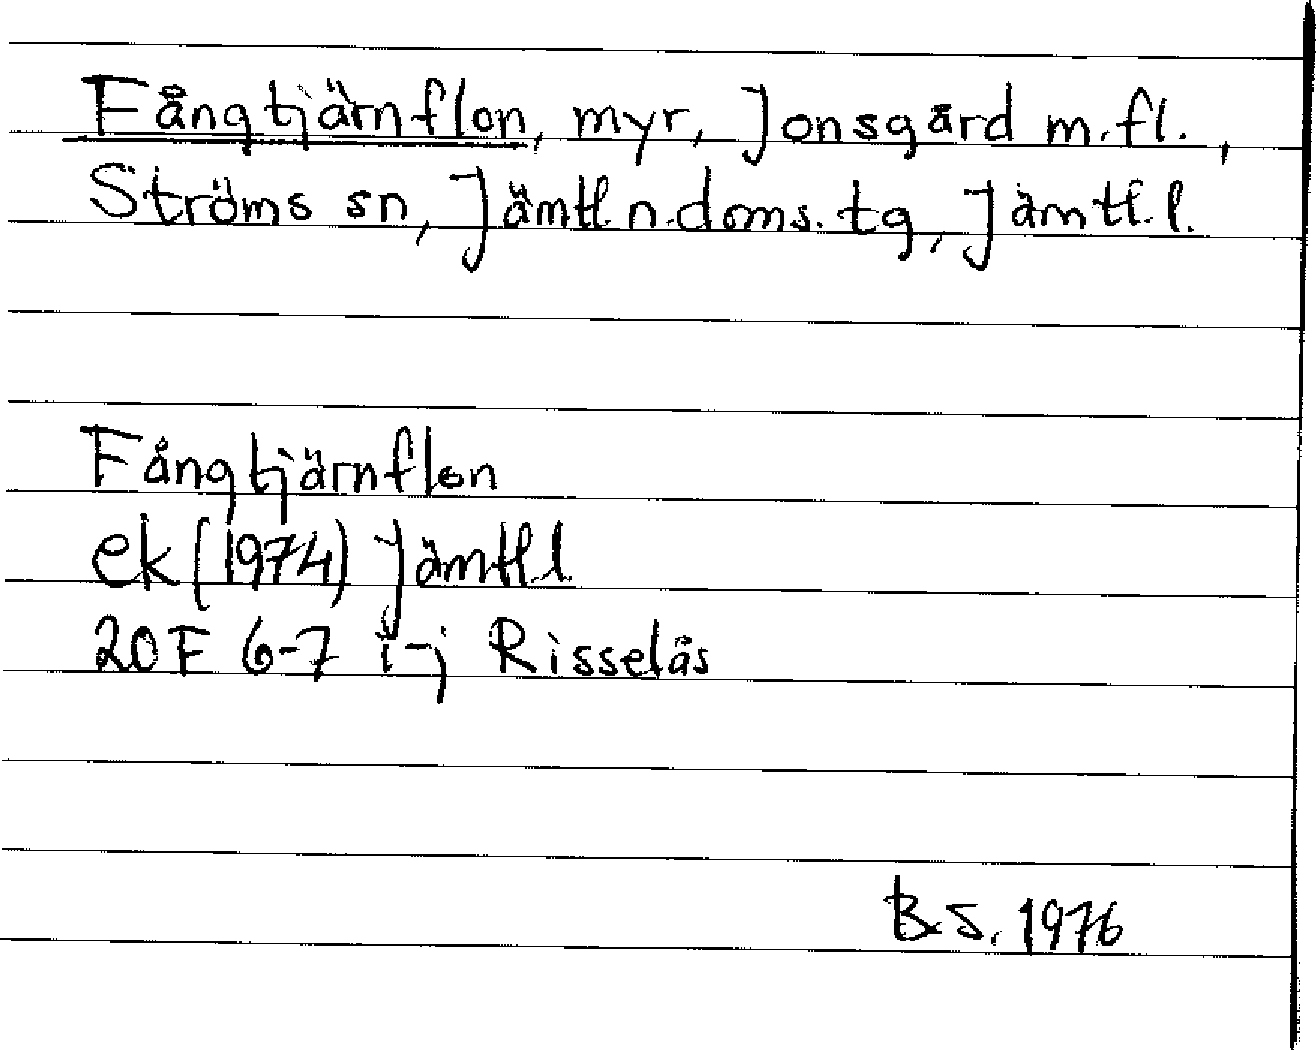 Fångtjärnflon, myr, Jonsgård m.fl.,
Ströms sn, Jämtl.n.doms.tg, Jämtl.l.
Fångtjärnflon
ek (1974) Jämtl.l.
20F 6-7 i-j Risselås
B.S. 1976